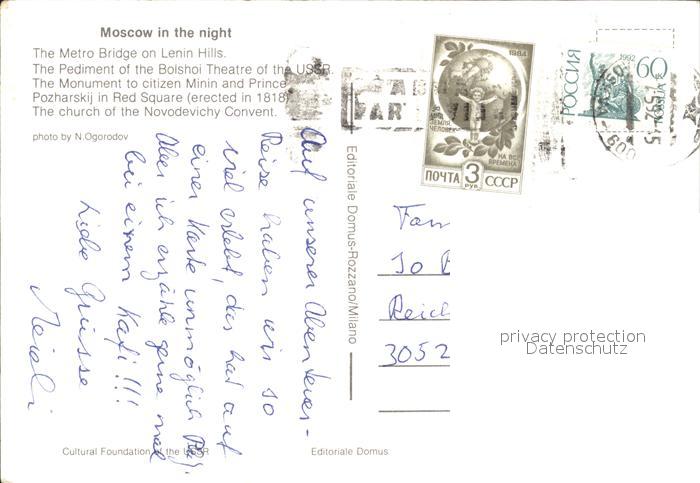 Moscow in the night
The Metro Bridge on Lenin Hills.
The Pediment of the Bolshoi Theatre of the USSR.
The Monument to citizen Minin and Prince
Pozharskij in Red Square (erected in 1818)
The church of the Novodevichy Convent.
photo by N.Ogorodov
Auf unserer Abenteuer-
Reise haben wir so
viel erlebt, das hat auf
einer Karte unmöglich Platz.
Aber ich erzähle gerne mal
bei einem Kafi!!!
Liebe Grüsse
Cultural Foundation of the USSR
Editoriale Domus
Editoriale Domus-Rozzano/Milano
1984
НА ВСЕ
ВРЕМЕНА
ПОЧТА 3 СССР
РУБ
РОССИЯ
1992
60
Fam
Jo
Reich
3052
privacy protection
Datenschutz